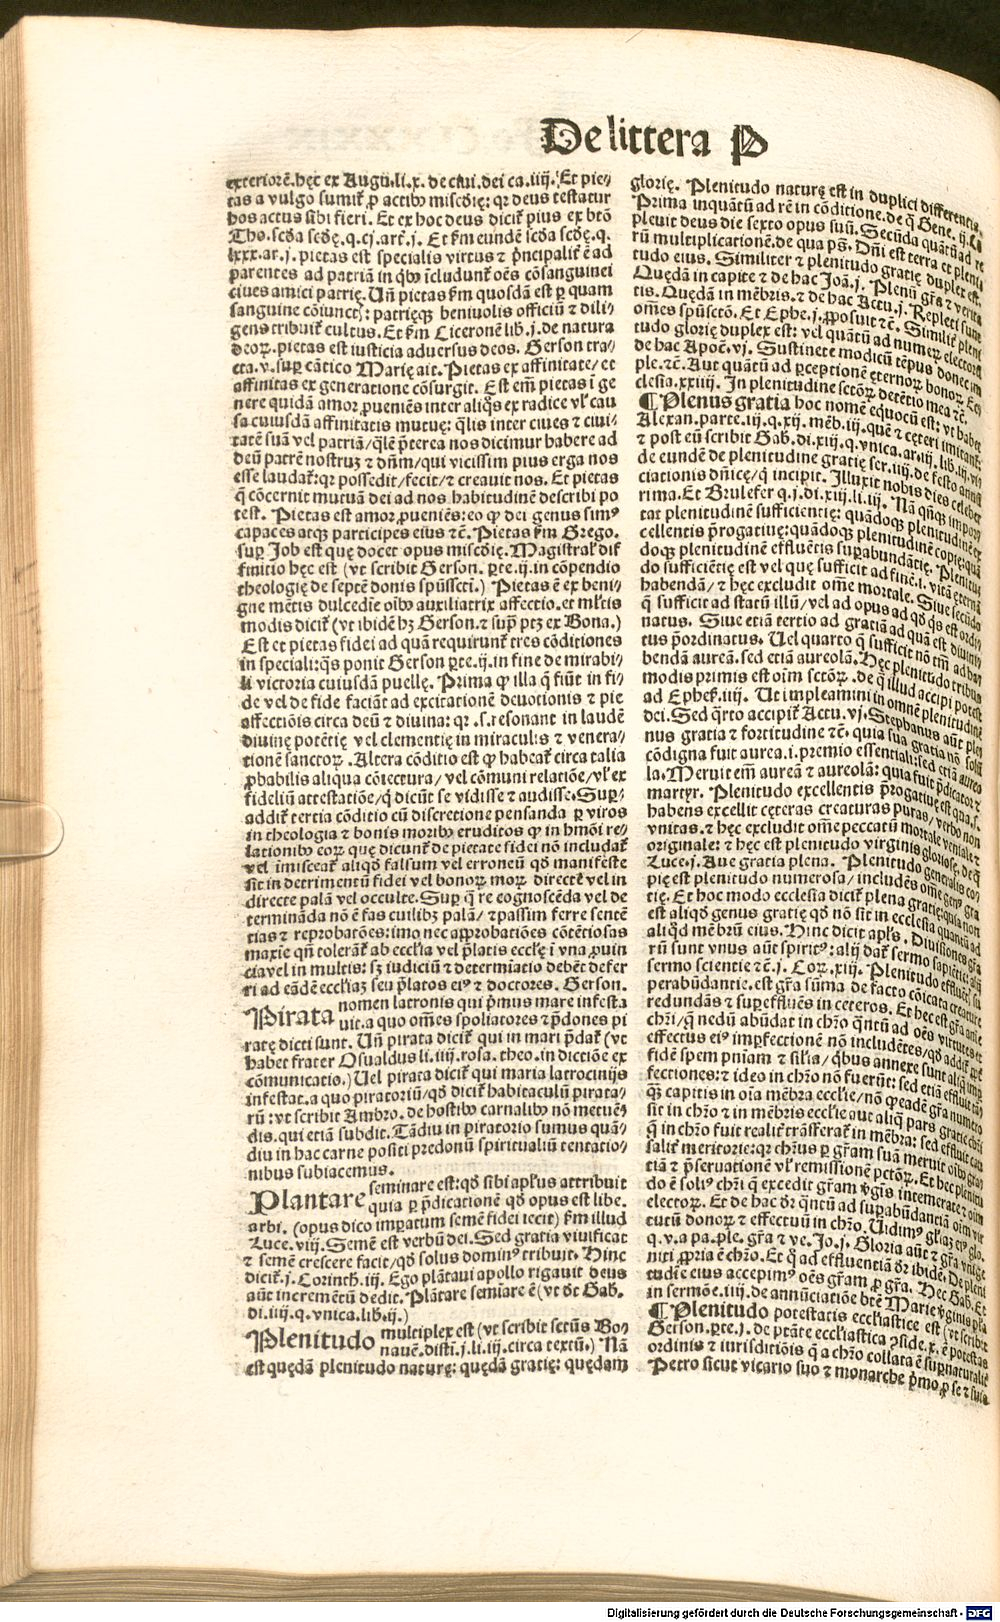 De littera P
exteriorē. hęc ex Augu. li. x. de ciui. dei ca. iiij. Et pie⸗
tas a vulgo sumit᷑ ꝓ actibꝰ miscd̄ię: qꝛ deus testatur
hos actus sibi fieri. Et ex hoc deus dicit᷑ pius ex btō
Tho. scd̄a scd̄ę. q. cj. art̄. j. Et s̄m eundē scd̄a scd̄ę. q.
lxxx. ar. j. pietas est specialis virtus ⁊ p̄ncipalit᷑ ē ad
parentes ad patriā in qͥbꝰ īcludunt᷑ oēs cōsanguinei
ciues amici patrię. Uñ pietas s̄m quosdā est ꝑ quam
sanguine cōiunct᷑: patrięqꝫ beniuolis officiū ⁊ dili⸗
gens tribuit᷑ cultus. Et s̄m Ciceronē lib. j. de natura
deoꝝ. pietas est iusticia aduersus deos. Gerson tra⸗
cta. v. suꝑ cātico Marię ait. Pietas ex affinitate/ et
affinitas ex generatione cōsurgit. Est em̄ pietas ī ge
nere quidā amor ꝓueniēs inter aliqͦs ex radice vl̓ cau
sa cuiusdā affinitatis mutuę: qͣlis inter ciues ⁊ ciui⸗
tatē suā vel patriā/ qͣle p̄terea nos dicimur habere ad
deū patrē nostruꝫ ⁊ dn̄m/ qui vicissim pius erga nos
esse laudat᷑: qꝛ possedit/ fecit/ ⁊ creauit nos. Et pietas
q̄ cōcernit mutuā dei ad nos habitudinē describi po
test. Pietas est amor ꝓueniēs: eo ꝙ dei genus simꝰ
capaces atqꝫ participes eius ⁊c̄. Pietas s̄m Grego.
suꝑ Job est quę docet opus miscd̄ię. Magistral̓ dif
finitio hęc est (vt scribit Gerson. ꝑte. ij. in cōpendio
theologię de septē donis spūssctī.) Pietas ē ex beni⸗
gne mētis dulcedīe oībꝰ auxiliatrix affectio. et ml̓tis
modis dicit᷑ (vt ibidē hꝫ Gerson. ⁊ supͣ ptꝫ ex Bona.)
Est et pietas fidei ad quā requirunt᷑ tres cōditiones
in speciali: qͣs ponit Gerson ꝑte. ij. in fine de mirabi⸗
li victoria cuiusdā puellę. Prima ꝙ illa q̄ fiūt in fi⸗
de vel de fide faciāt ad excitationē deuotionis ⁊ pie
affectiōis circa deū ⁊ diuina: qꝛ .s. resonant in laudē
diuinę potētię vel clementię in miraculis ⁊ venera⸗
tionē sanctoꝝ. Altera cōditio est ꝙ habeat᷑ circa talia
ꝓbabilis aliqua cōiectura/ vel cōmuni relatiōe/ vl̓ ex
fideliū attestatiōe/ q̄ dicūt se vidisse ⁊ audisse. Suꝑ⸗
addit᷑ tertia cōditio cū discretione pensanda ꝑ viros
in theologia ⁊ bonis moribꝰ eruditos ꝙ in hmōi re⸗
lationibꝰ eoꝝ que dicunt᷑ de pietate fidei nō includat᷑
vel imisceat᷑ aliqͩ falsum vel erroneū qd̄ manifeste
sit in detrimentū fidei vel bonoꝝ moꝝ directē vel in
directe palā vel occulte. Suꝑ q̄ re cognoscēda vel de
termināda nō ē fas cuilibꝫ palā/ ⁊ passim ferre sentē
tias ⁊ reprobatōes: imo nec approbatiōes cōtētiosas
maxīe qn̄ tolerat᷑ ab eccl̓ia vel p̄latis eccl̓ię ī vna ꝓuin
cia vel in multis: sꝫ iudiciū ⁊ determiatio debēt defer
ri ad eādē eccl̓iaꝫ seu p̄latos eiꝰ ⁊ doctores. Gerson.
Pirata nomen latronis qui pͥmus mare infesta
uit. a quo om̄es spoliatores ⁊ p̄dones pi
ratę dicti sunt. Uñ pirata dicit᷑ qui in mari p̄dat᷑ (vt
habet frater Osualdus li. iiij. rosa. theo. in dictiōe ex
cōmunicatio.) Uel pirata dicit᷑ qui maria latrocinijs
infestat. a quo piratoriū/ qd̄ dicit᷑ habitaculū pirata⸗
rū: vt scribit Ambro. de hostibꝰ carnalibꝰ nō metuē⸗
dis. qui etiā subdit. Tādiu in piratorio sumus quā⸗
diu in hac carne positi predonū spiritualiū tentatio⸗
nibus subiacemus.
Plantare seminare est: qd̄ sibi apl̓us attribuit
quia ꝑ p̄dicationē qd̄ opus est libe.
arbi. (opus dico imꝑatum semē fidei iecit) s̄m illud
Luce. viij. Semē est verbū dei. Sed gratia viuificat
⁊ semē crescere facit/ qd̄ solus dominꝰ tribuit. Hinc
dicit᷑. j. Corinth. iij. Ego plātaui apollo rigauit deus
aūt incremētū dedit. Plātare semiare ē (vt dt̄ Gab.
di. iiij. q. vnica. lib. ij.)
Plenitudo multiplex est (vt scribit sctūs Bo⸗
nauē. distī. j. li. iij. circa textū.) Nā
est quędā plenitudo naturę: quędā gratię: quędam
glorię. Plenitudo naturę est in duplici differentia.
Prima inquātū ad rē in cōditione. de q̄ Gene. ij. Cō
pleuit deus die sexto opus suū. Secūda quātū ad re
rū multiplicationē. de qua pͣs. Dn̄i est terra et pleni
tudo eius. Similiter ⁊ plenitudo gratię duplex est.
Quędā in capite ⁊ de hac Joā. j. Plenū gr̄a ⁊ verita
tis. Quędā in mēbris. ⁊ de hac Actu. j. Repleti sunt
om̄es spūsctō. Et Ephe. j. ꝓposuit ⁊c̄. Similit᷑ pleni
tudo glorię duplex est: vel quātū ad numeꝝ electoꝝ
de hac Apoc̄. vj. Sustinete modicū tēpus donec im
ple. ⁊c̄. Aut quātū ad ꝑceptionē ęternoꝝ bonoꝝ Ecc
clesia. xxiiij. In plenitudine sctōꝝ detētio mea ⁊c̄.
¶ Plenus gratia hoc nomē equocū est: vt habet
Alexan. parte. iij. q. xij. mēb. iij. quē ⁊ cęteri imitant᷑
⁊ post eū scribit Gab. di. xiij. q. vnica. ar. iij. lib. iij.
de eundē de plenitudine gratię ser. iiij. de festo annū
ciationis dn̄icę/ q̄ incipit. Illuxit nobis dies celeber
rima. Et Brulefer q. j. di. xiij. li. iij. Nā qn̄qꝫ impor
tat plenitudinē sufficientię: quādoqꝫ plenitudinē ex
cellentis p̄rogatiuę: quādoqꝫ plenitudinē copię: quā
doqꝫ plenitudinē effluētis suꝑabundātię. Plenitu
do sufficiētię est vel quę sufficit ad finē. i. vitā ęternā
habendā/ ⁊ hęc excludit om̄e mortale. Siue secūdo
q̄ sufficit ad statū illū/ vel ad opus ad qd̄ qͥs est ordi
natus. Siue etiā tertio ad gratiā ad quā est diuini
tus p̄ordinatus. Uel quarto q̄ sufficit nō tm̄ ad ha
bendā aureā. sed etiā aureolā. Hęc plenitudo tribus
modis primis est oīm sctōꝝ. de q̄ illud accipi potest
ad Ephes̄. iiij. Ut impleamini in omnē plenitudinē
dei. Sed qͣrto accipit᷑ Actu. vj. Stephanus aūt ple
nus gratia ⁊ fortitudine ⁊c̄. quia sua gratia nō solū
cōdigna fuit aurea. i. premio essentiali: sed etiā aureo
la. Meruit em̄ aureā ⁊ aureolā: quia fuit p̄dicator ⁊
martyr. Plenitudo excellentis p̄rogatiuę est qua .s.
habens excellit cęteras creaturas puras/ verbo non
vnitas. ⁊ hęc excludit om̄e peccatū mortale veniale ⁊
originale: ⁊ hęc est plenitudo virginis gloriosę. de q̄
Luce. j. Aue gratia plena. Plenitudo generalis co
pię est plenitudo numerosa/ includēs om̄e genꝰ gra
tię. Et hoc modo ecclesia dicit᷑ plena gratię: quia non
est aliqd̄ genus gratię qd̄ nō sit in ecclesia quantū ad
aliqd̄ mēbrū eius. Hinc dicit apl̓s. Diuisiones gr̄a
rū sunt vnus aūt spiritꝰ: alij dat᷑ sermo sapiētię: alij
sermo scientie ⁊c̄. j. Coꝝ. xij. Plenitudo effluētis su
perabūdantie. est gr̄a sūma de facto cōicata creature
redundās ⁊ suꝑeffluēs in ceteros. Et hec est gr̄a aīe
chr̄i/ q̄ nedū abūdat in chr̄o qͣntū ad oēs virtutes et
effectus eiꝰ imꝑfectionē nō includētes/ qd̄ addit᷑ ꝓpt̄
fidē spem pn̄iam ⁊ sil̓ia/ qͥbus annexe sunt aliq̄ imꝑ
fectiones: ⁊ ideo in chr̄o nō fuerūt: sed etiā effluit tā
qͣꝫ capitis in oīa mēbra eccl̓ie/ nō ꝙ eadē gr̄a numero
sit in chr̄o ⁊ in mēbris eccl̓ie aut aliq̄ pars gratie chr̄i
q̄ in chr̄o fuit realit᷑ trāsferat᷑ in mēbra: sed effluit cau
salit᷑ meritorie: qꝛ chr̄us ꝑ gr̄am suā meruit oībꝰ gra
tiā ⁊ p̄seruationē vl̓ remissionē pctōꝝ. Et hec plenitu
do ē soliꝰ chr̄i q̄ excedit gr̄am vͥgīs intemerate ⁊ oīm
electoꝝ. Et de hac dr̄ qͣntū ad suꝑabūdantiā oīm vir
tutū donoꝝ ⁊ effectuū in chr̄o. Uidimꝰ gl̓iaꝫ eiꝰ glo.
q. v. a pa. ple. gr̄a ⁊ ve. Jo. j. Gloria aūt ⁊ gr̄a vnige
niti ꝓpria ē chr̄o. Et qͦ ad effluentiā dr̄ ibidē. De pleni
tudīe eius accepimꝰ oēs gr̄am ꝓ gr̄a. Hec Gab. Et
in sermōe. iiij. de annūciatiōe btē Marie vͥginis p̄fa
¶ Plenitudo potestatis eccl̓iastice est (vt scribit
Gerson. ꝑte. j. de ptāte eccl̓iastica ꝯside. x. ē potestas
ordinis ⁊ iurisditiōis q̄ a chr̄o collata ē suꝑnaturalit᷑
Petro sicut vicario suo ⁊ monarche pͥmo ꝓ se ⁊ suis
Digitalisierung gefördert durch die Deutsche Forschungsgemeinschaft - DFG